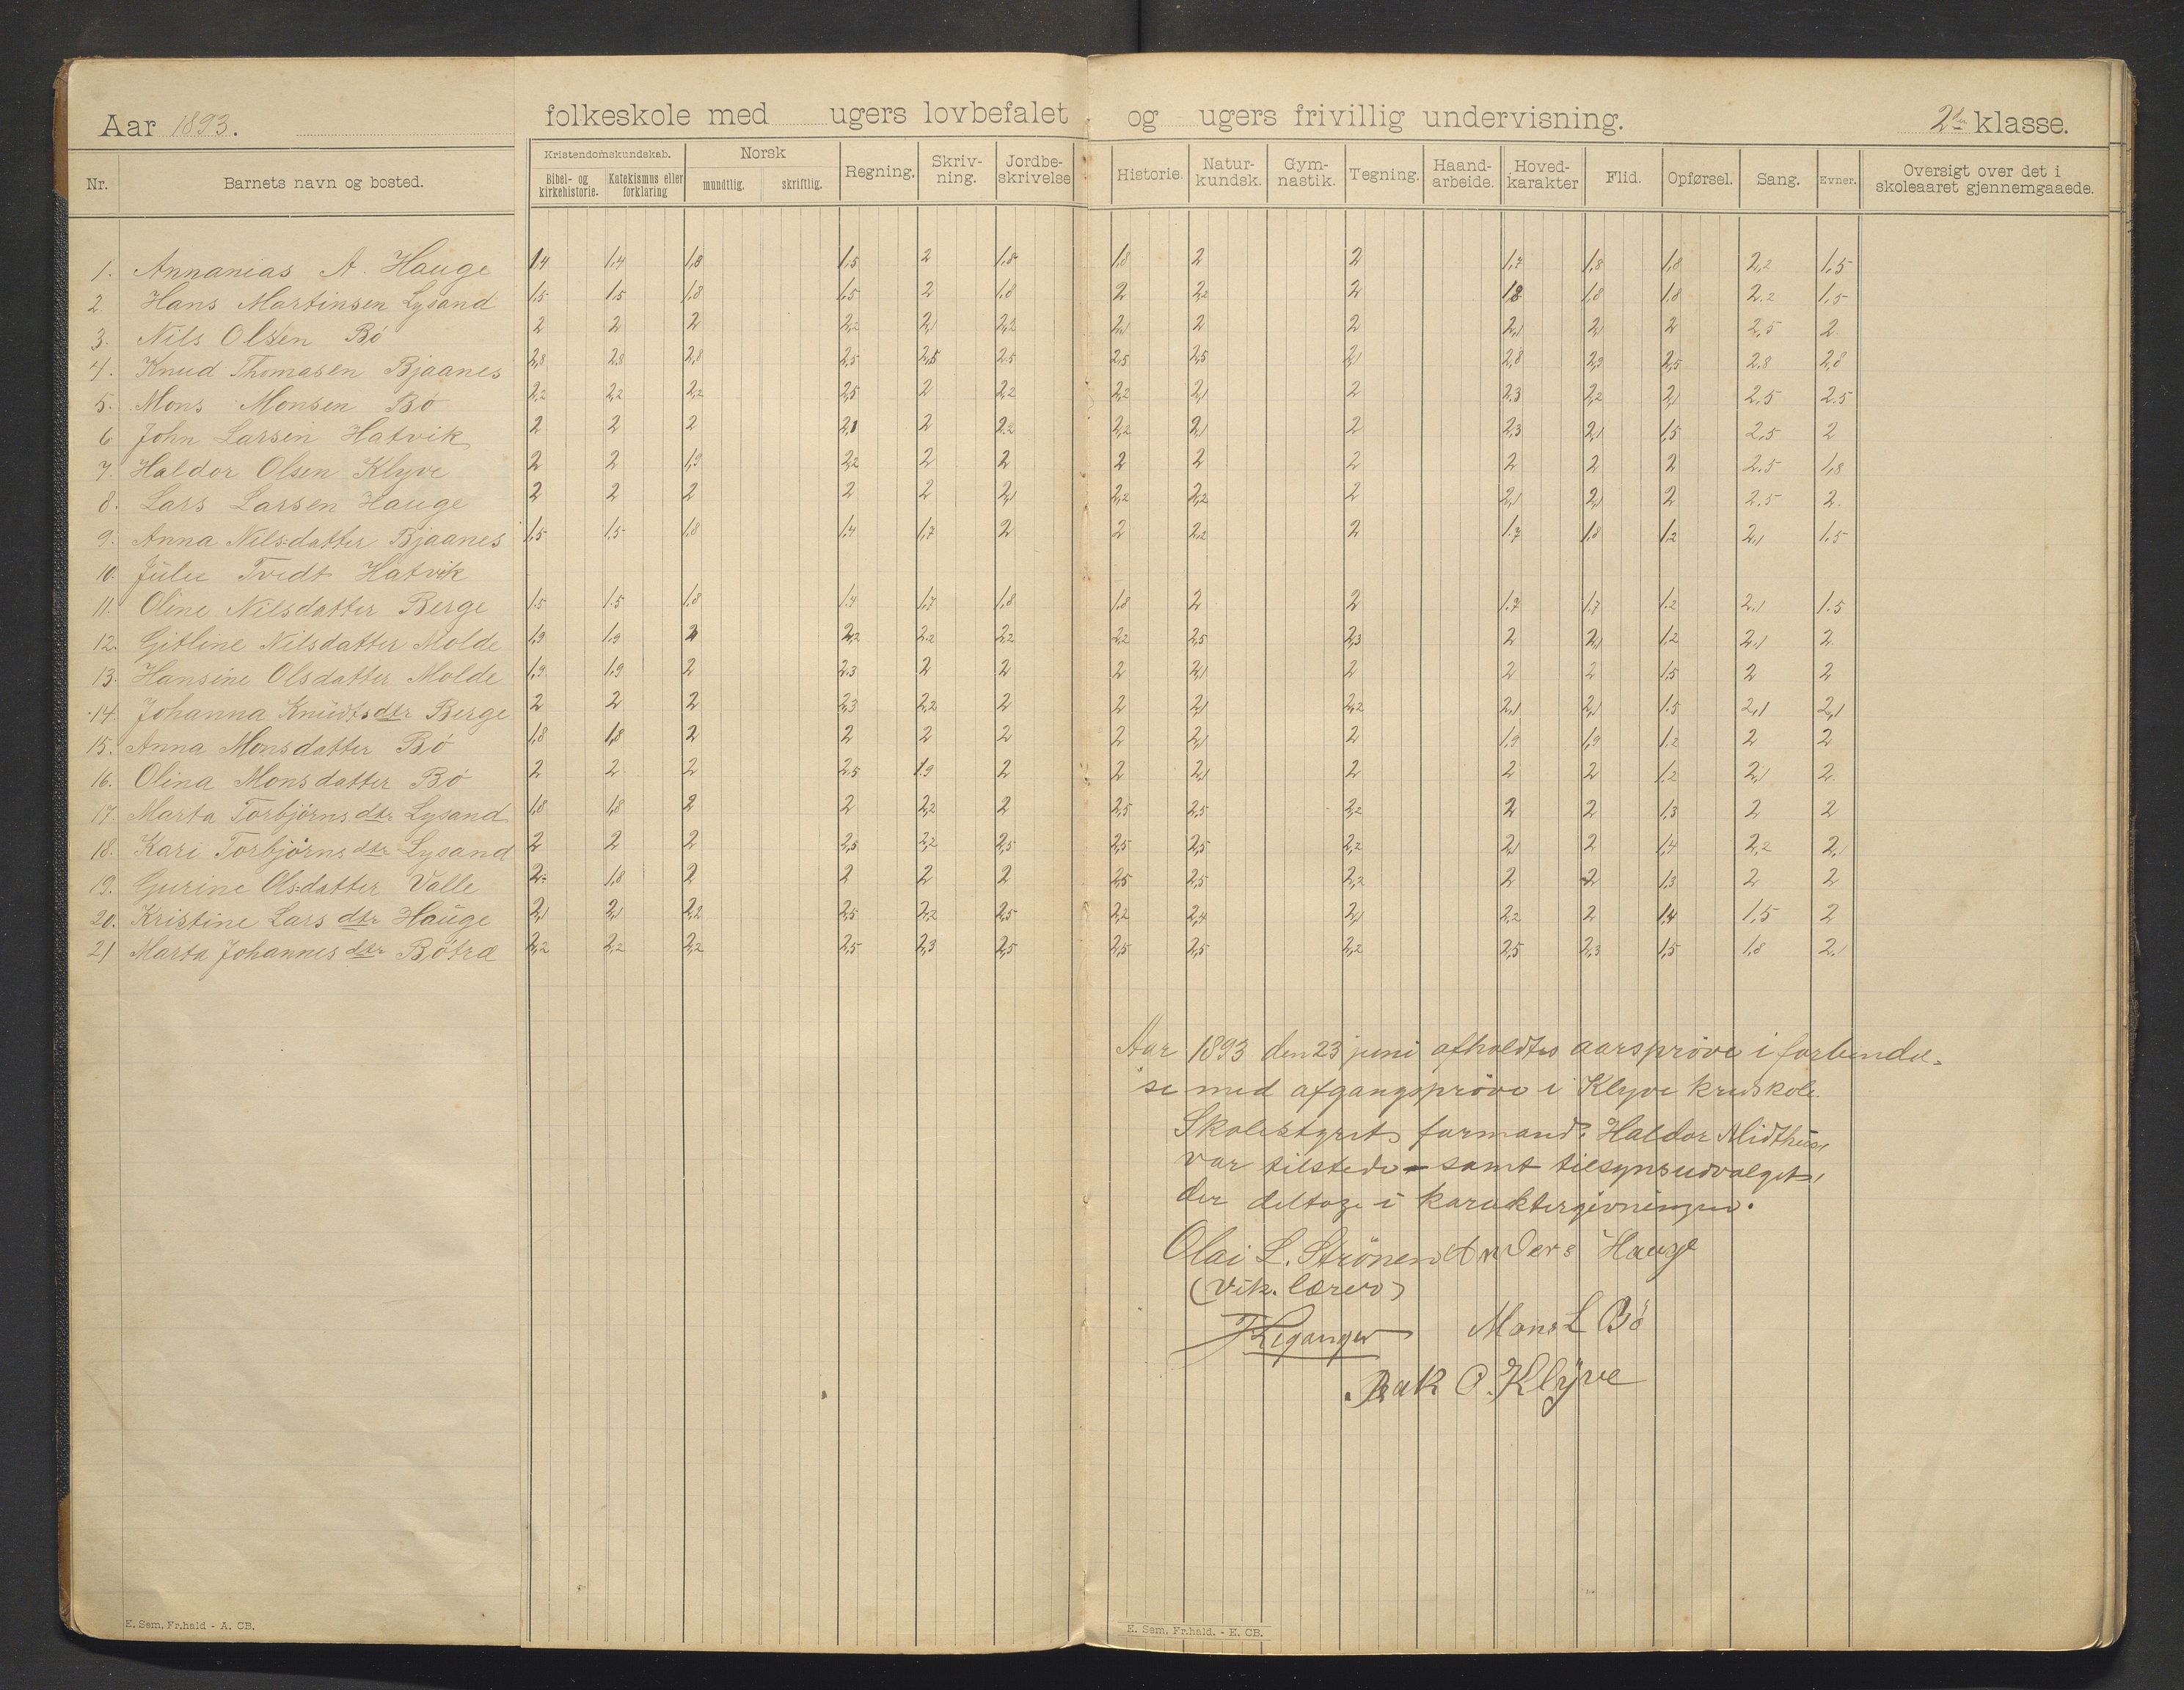 Aar 1893. folkeskole med ugers lovbefalet og ugers frivillig undervisning. 2den klasse.
Nr. Barnets navn og bosted. Kristendomskundskab. Bibel- og kirkehistorie. Katekismus eller forklaring Norsk mundtlig. skriftlig. Regning. Skriv-ning. Jordbe-skrivelse Historie. Natur-kundsk. Gym-nastik. Tegning. Haand-arbeide. Hoved-karakter Flid. Opførsel. Sang. Evner. Oversigt over det i skoleaaret gjennemgaaede.
1. Annanias A. Hauge 1,4 1,4 1,8 1,5 2 1,8 1,8 2 2 1,7 1,8 1,8 2,2 1,5
2 Hans Martinsen Lysand 1,5 1,5 1,8 1,5 2 1,8 2 2,2 2 1,8 1,8 1,8 2,2 1,5
3. Nils Olsen Bö 2 2 2 2,2 2,1 2,2 2,1 2 2 2,1 2,1 2 2,5 2
4. Knud Thomasen Bjaanes 2,8 2,8 2,8 2,5 2,5 2,5 2,5 2,5 2,1 2,8 2,3 2,5 2,8 2,8
5. Mons Monsen Bö 2,2 2,2 2,2 2,5 2 2,2 2,2 2,1 2 2,3 2,2 2,1 2,5 2,5
6 John Larsen Hatvik 2 2 2 2,1 2 2,2 2,2 2,1 2 2,3 2,1 1,5 2,5 2
7. Haldor Olsen Klyve 2 2 1,9 2,2 2 2 2 2 2 2 2 2 2,5 1,8
8. Lars Larsen Hauge 2 2 2 2 2 2,1 2,2 2,2 2 2,1 2,1 2 2,5 2.
9. Anna Nilsdatter Bjaanes 1,5 1,5 1,8 1,4 1,7 2 2 2,2 2 1,7 1,8 1,2 2,1 1,5
10. Julie Tvedt Hatvik
11. Oline Nilsdatter Berge 1,5 1,5 1,8 1,4 1,7 1,8 1,8 2 2 1,7 1,7 1,2 2,1 1,5
12. Gitline Nilsdatter Molde 1,9 1,9 2 2,2 2,2 2,2 2,2 2,5 2,3 2 2,1 1,2 2,1 2
13. Hansine Olsdatter Molde 1,9 1,9 2 2,3 2 2 2 2,1 2 2 2 1,5 2 2
14. Johanna Knudtsdtr Berge 2 2 2 2,3 2,2 2 2 2,1 2,2 2,1 2,1 1,5 2,1 2,1
15. Anna Monsdatter Bö 1,8 1,8 2 2 2 2 2 2,1 2 1,9 1,9 1,2 2 2
16. Olina Monsdatter Bö 2 2 2 2,5 1,9 2 2 2,1 2 2 2 1,2 2,1 2
17. Marta Torbjörns dtr Lysand 1,8 1,8 2 2 2,2 2 2,5 2,5 2,2 2 2 1,3 2 2
18. Kari Torbjörns dtr Lysand 2 2 2 2,5 2,2 2,5 2,5 2,5 2,2 2,1 2 1,4 2,2 2,1
19. Gurine Olsdatter Valle 2 1,8 2 2 2 2 2,5 2,5 2,2 2 2 1,3 2 2
20. Kristine Lars dtr Hauge 2,1 2,1 2,2 2,5 2,2 2,5 2,2 2,4 2,1 2,2 2 1,4 1,5 2
21 Marta Johannes dtr Bötræ 2,2 2,2 2,2 2,5 2,3 2,5 2,5 2,5 2,2 2,5 2,3 1,5 1,8 2,1
Aar 1893 den 23 juni afholdtes aarspröve i forbindel-
se med afgangspröve i Klyve kredskole.
Skolestyrets formand: Haldor Midthus,
var tilstede samt tilsynsudvalget,
der deltoge i karaktergivningen.
Olai L. Strönen Anders Hauge
(Vik. lærer)
Mons L Bö
O. Klÿve
E. Sem. Fr.hald - A. CB.
E. Sem. Fr.hald. - E. CB.